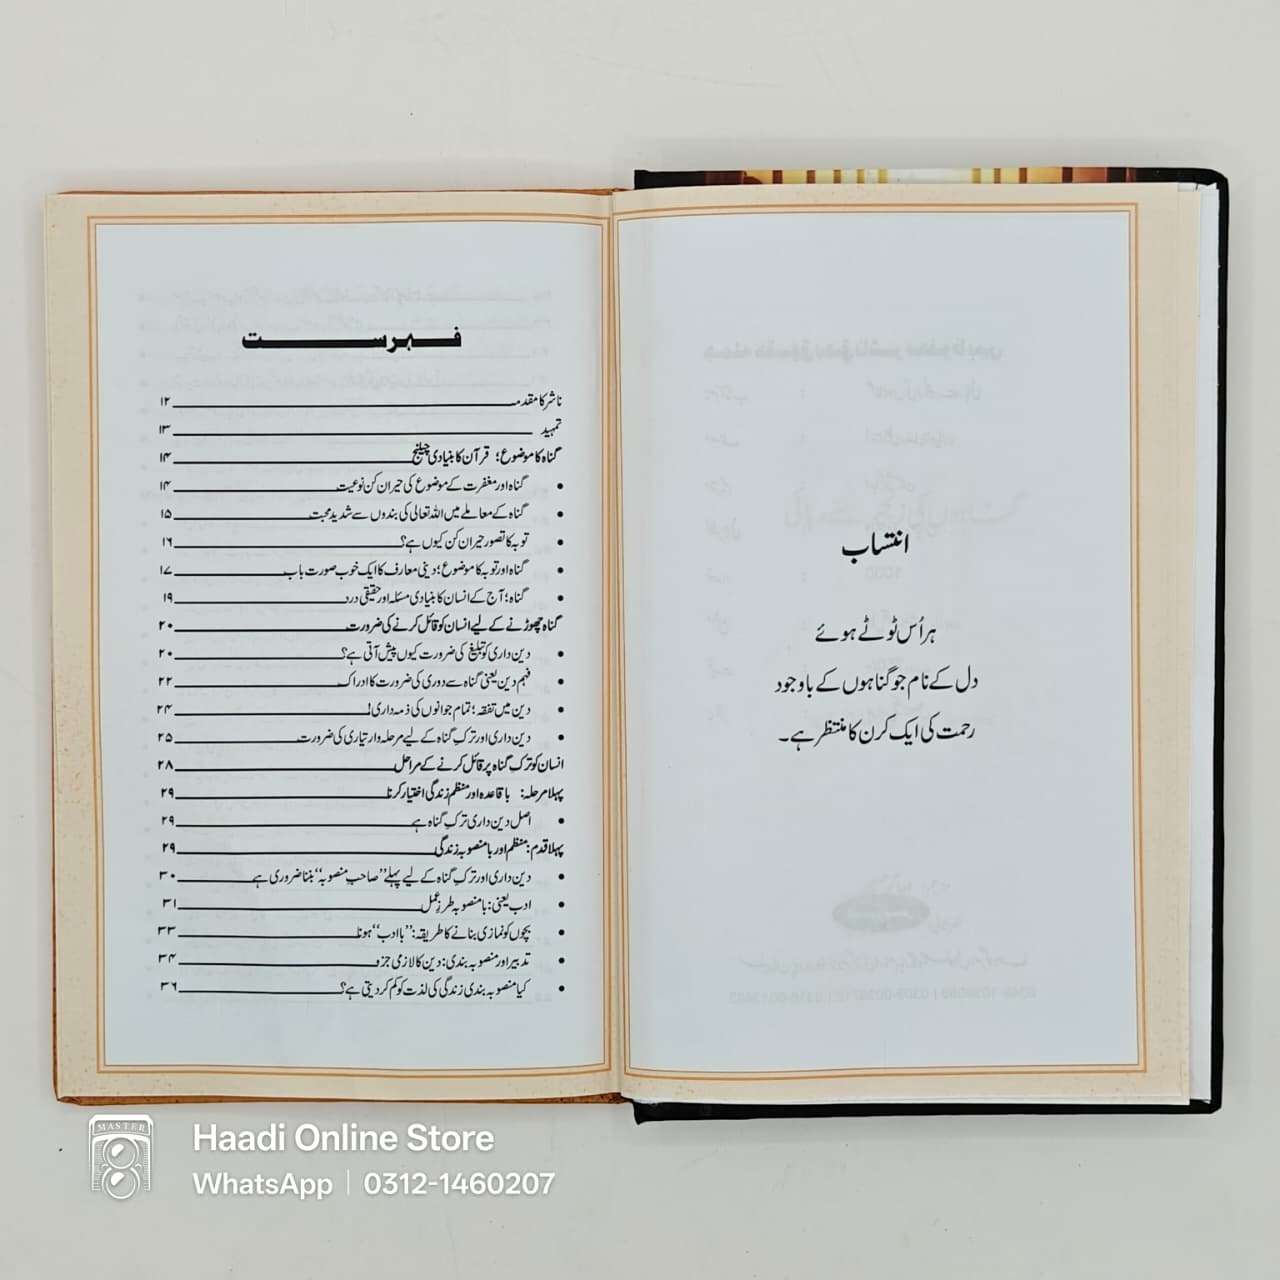 انتساب
ہر اُس ٹوٹے ہوئے
دل کے نام جو گناہوں کے باوجود
رحمت کی ایک کرن کا منتظر ہے۔
فہرست
ناشر کا مقدمہ ۱۲
تمہید ۱۳
گناہ کا موضوع؛ قرآن کا بنیادی چیلنج ۱۴
• گناہ اور مغفرت کے موضوع کی حیران کن نوعیت ۱۴
• گناہ کے معاملے میں اللہ تعالی کی بندوں سے شدید محبت ۱۵
• توبہ کا تصور حیران کن کیوں ہے؟ ۱۶
• گناہ اور توبہ کا موضوع؛ دینی معارف کا ایک خوب صورت باب ۱۷
• گناہ؛ آج کے انسان کا بنیادی مسئلہ اور حقیقی درد ۱۹
گناہ چھوڑنے کے لیے انسان کو قائل کرنے کی ضرورت ۲۰
• دین داری کو تبلیغ کی ضرورت کیوں پیش آتی ہے؟ ۲۰
• فہم دین یعنی گناہ سے دوری کی ضرورت کا ادراک ۲۲
• دین میں تفقہ؛ تمام جوانوں کی ذمہ داری! ۲۴
• دین داری اور ترکِ گناہ کے لیے مرحلہ وار تیاری کی ضرورت ۲۵
انسان کو ترکِ گناہ پر قائل کرنے کے مراحل ۲۸
پہلا مرحلہ: باقاعدہ اور منظم زندگی اختیار کرنا ۲۹
• اصل دین داری ترکِ گناہ ہے ۲۹
پہلا قدم: منظم اور بامنصوبہ زندگی ۲۹
• دین داری اور ترکِ گناہ کے لیے پہلے ”صاحبِ منصوبہ“ بننا ضروری ہے ۳۰
• ادب یعنی: بامنصوبہ طرزِ عمل ۳۱
• بچوں کو نمازی بنانے کا طریقہ: ”باادب“ ہونا ۳۳
• تدبیر اور منصوبہ بندی: دین کا لازمی جزو ۳۴
• کیا منصوبہ بندی زندگی کی لذت کو کم کردیتی ہے؟ ۳۶
MASTER
Haadi Online Store
WhatsApp | 0312-1460207